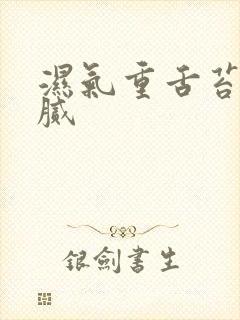 濕氣重舌苔
膩
銀劍書生